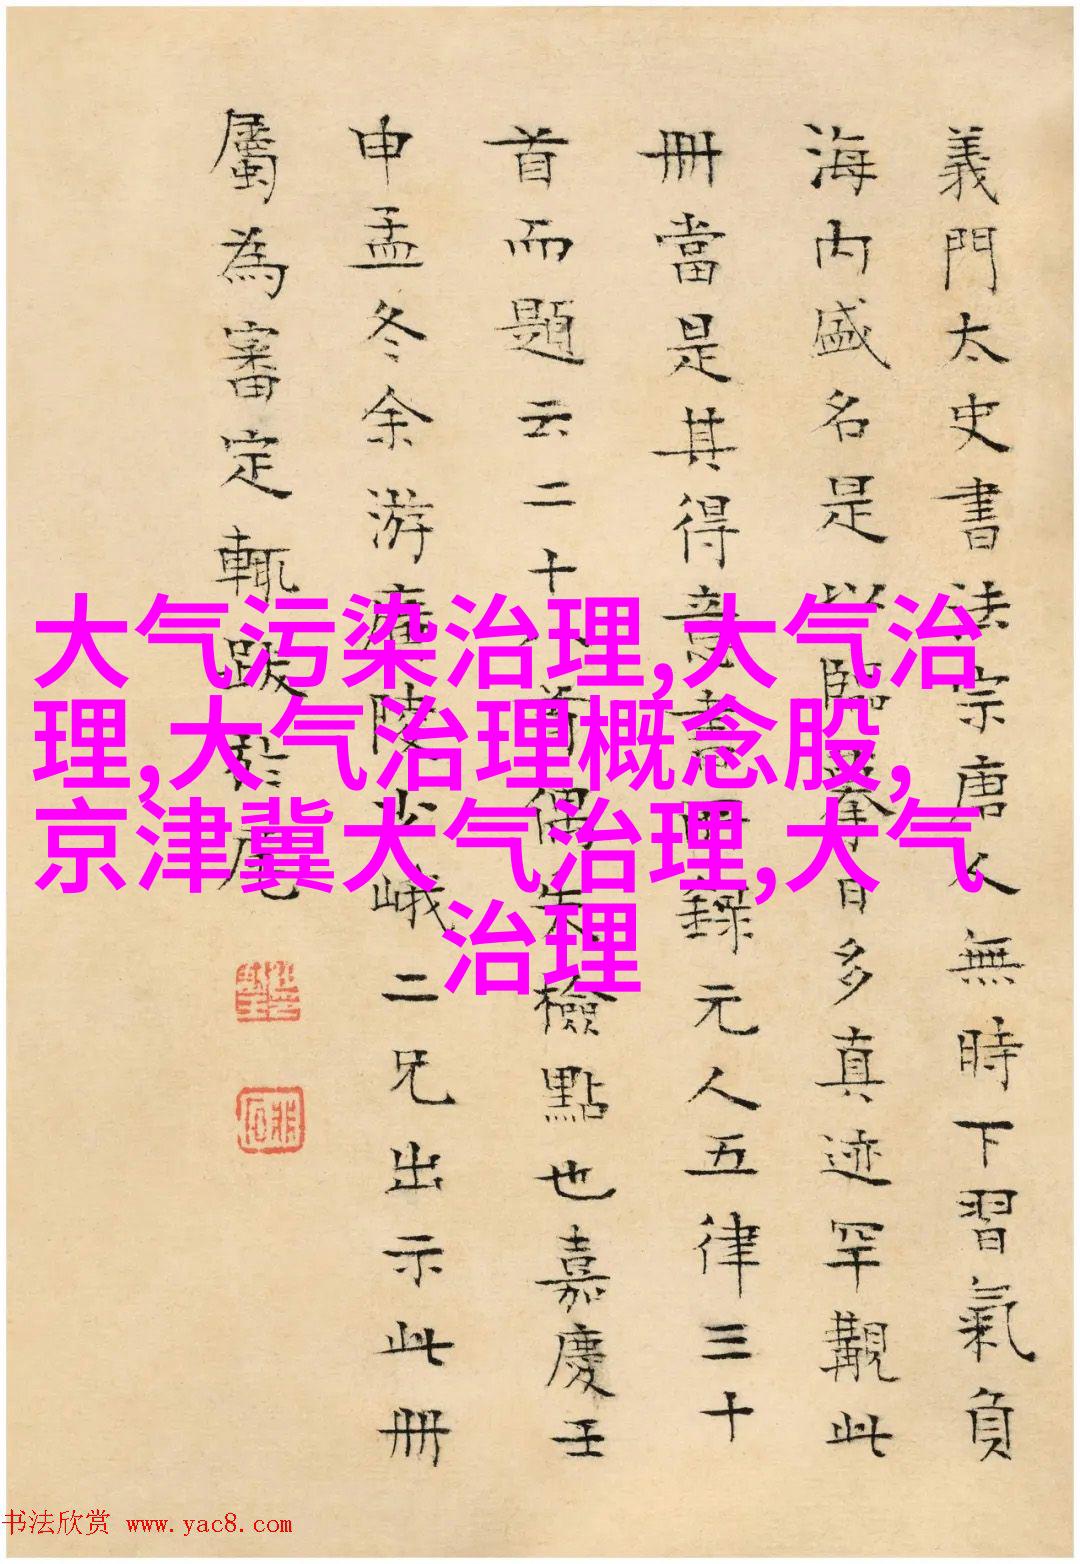 義門太史書法宗唐人無時下習氣負
海内盛名是以臨摹日多真迹罕覯此
冊當是其得意書錄元人五律三十
首而題云二十八首偶失檢點也嘉慶壬
申孟冬余游廣陵少峨二兄出示此冊
屬為審定輒跋於尾
大气污染治理,大气治
理,大气治理概念股,
京津冀大气治理,大气
治理
书法欣赏 www.yac8.com